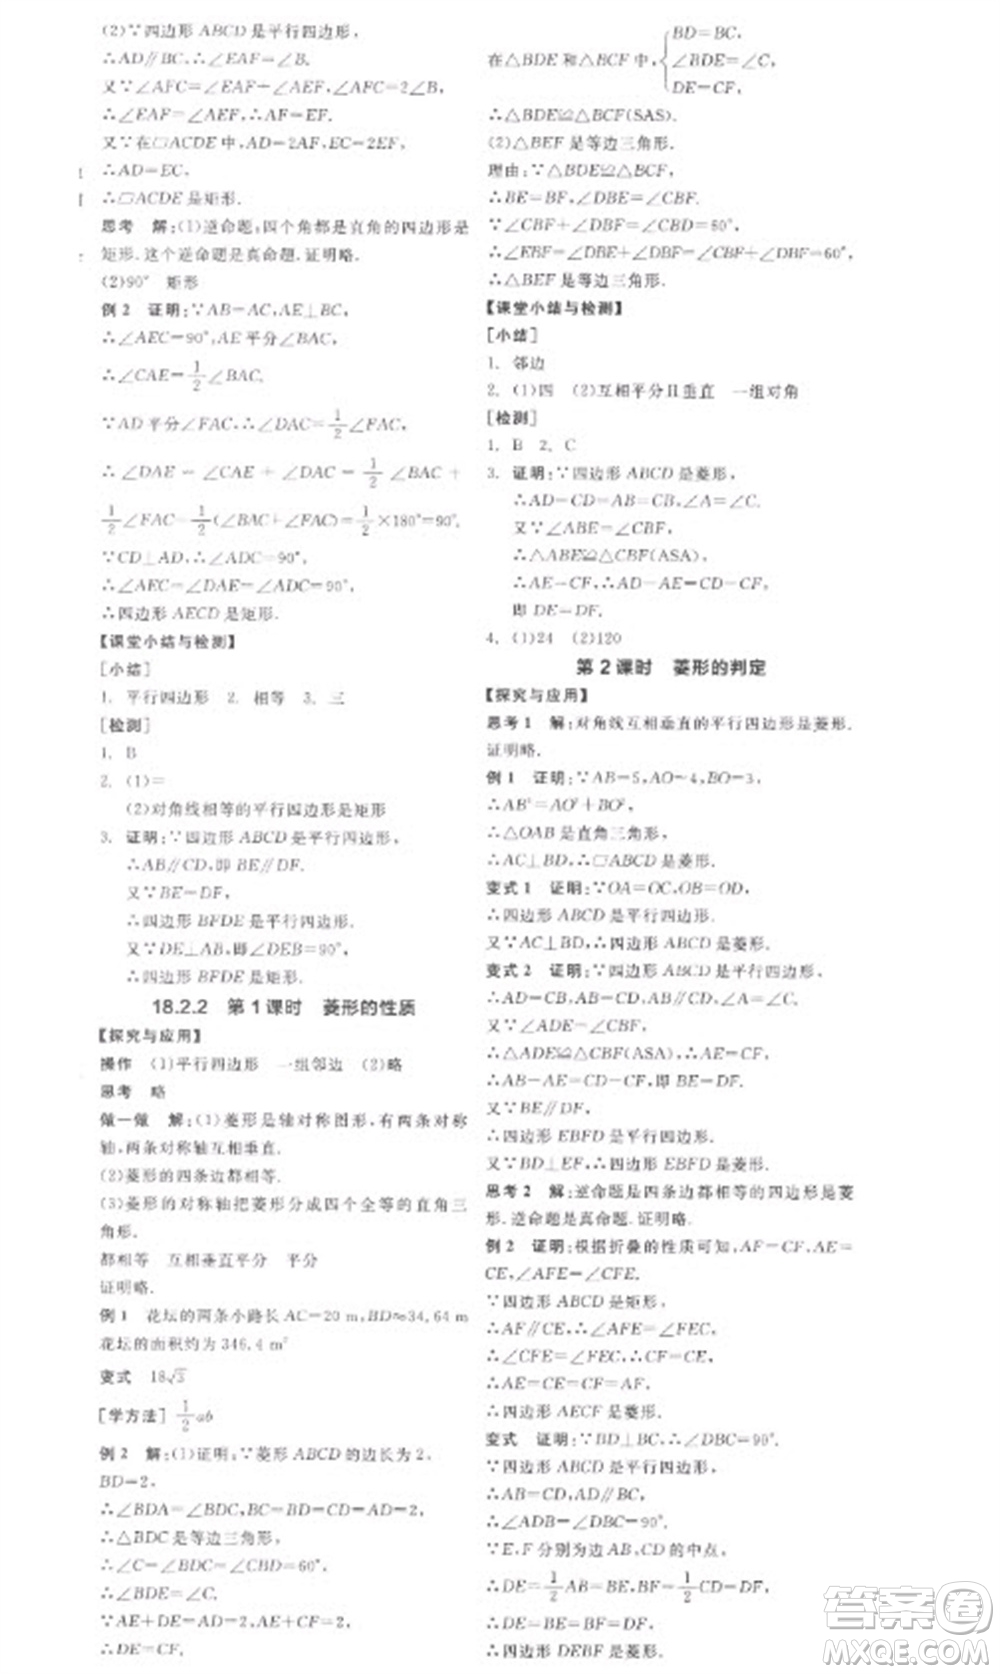 (2)∵四边形 ABCD 是平行四边形,
∴AD∥BC,∴∠EAF=∠B.
又∵∠AFC=∠EAF+∠AEF,∠AFC=2∠B,
∴∠EAF=∠AEF,∴AF=EF.
又∵在□ACDE 中,AD=2AF,EC=2EF,
∴AD=EC,
∴□ACDE 是矩形.
思考 解:(1)逆命题:四个角都是直角的四边形是
矩形.这个逆命题是真命题.证明略.
(2)90° 矩形
例 2 证明:∵AB=AC,AE⊥BC,
∴∠AEC=90°,AE 平分∠BAC,
∴∠CAE=1/2∠BAC.
∵AD 平分∠FAC,∴∠DAC=1/2∠FAC,
∴∠DAE=∠CAE+∠DAC=1/2∠BAC+
1/2∠FAC=1/2(∠BAC+∠FAC)=1/2×180°=90°.
∵CD⊥AD,∴∠ADC=90°,
∴∠AEC=∠DAE=∠ADC=90°,
∴四边形 AECD 是矩形.
【课堂小结与检测】
[小结]
1. 平行四边形 2. 相等 3. 三
[检测]
1. B
2. (1)=
(2)对角线相等的平行四边形是矩形
3. 证明:∵四边形 ABCD 是平行四边形,
∴AB∥CD,即 BE∥DF.
又∵BE=DF,
∴四边形 BFDE 是平行四边形.
又∵DE⊥AB,即∠DEB=90°,
∴四边形 BFDE 是矩形.
18.2.2 第 1 课时 菱形的性质
【探究与应用】
操作 (1)平行四边形 一组邻边 (2)略
思考 略
做一做 解:(1)菱形是轴对称图形,有两条对称
轴,两条对称轴互相垂直.
(2)菱形的四条边都相等.
(3)菱形的对称轴把菱形分成四个全等的直角三
角形.
都相等 互相垂直平分 平分
证明略.
例 1 花坛的两条小路长 AC=20 m,BD≈34.64 m
花坛的面积约为 346.4 m²
变式 18√3
[学方法] 1/2 ab
例 2 解:(1)证明:∵菱形 ABCD 的边长为 2,
BD=2,
∴∠BDA=∠BDC,BC=BD=CD=AD=2,
∴△BDC 是等边三角形,
∴∠C=∠BDC=∠CBD=60°,
∴∠BDE=∠C.
∵AE+DE=AD=2,AE+CF=2,
∴DE=CF.
在△BDE 和△BCF 中,{BD=BC,
∠BDE=∠C,
DE=CF,
∴△BDE≌△BCF(SAS).
(2)△BEF 是等边三角形.
理由:∵△BDE≌△BCF,
∴BE=BF,∠DBE=∠CBF.
∵∠CBF+∠DBF=∠CBD=60°,
∴∠EBF=∠DBE+∠DBF=60°,
∴△BEF 是等边三角形.
【课堂小结与检测】
[小结]
1. 邻边
2. (1)四 (2)互相平分且垂直 一组对角
[检测]
1. B 2. C
3. 证明:∵四边形 ABCD 是菱形,
∴AD=CD=AB=CB,∠A=∠C.
又∵∠ABE=∠CBF,
∴△ABE≌△CBF(ASA),
∴AE=CF,∴AD-AE=CD-CF,
即 DE=DF.
4. (1)24 (2)120
第 2 课时 菱形的判定
【探究与应用】
思考 1 解:对角线互相垂直的平行四边形是菱形.
证明略.
例 1 证明:∵AB=5,AO=4,BO=3,
∴AB²=AO²+BO²,
∴△OAB 是直角三角形,
∴AC⊥BD,∴□ABCD 是菱形.
变式 1 证明:∵OA=OC,OB=OD,
∴四边形 ABCD 是平行四边形.
又∵AC⊥BD,∴四边形 ABCD 是菱形.
变式 2 证明:∵四边形 ABCD 是平行四边形,
∴AD=CB,AB=CD,∠A=∠C.
又∵∠ADE=∠CBF,
∴△ADE≌△CBF(ASA),∴AE=CF,
∴AB-AE=CD-CF,即 BE=DF.
又∵BE∥DF,
∴四边形 EBFD 是平行四边形.
又∵BD⊥EF,∴四边形 EBFD 是菱形.
思考 2 解:逆命题是四条边都相等的四边形是菱
形.逆命题是真命题.证明略.
例 2 证明:根据折叠的性质可知,AF=CF,AE=
CE,∠AFE=∠CFE.
∵四边形 ABCD 是矩形,
∴AF∥CE,∴∠AFE=∠CEF,
∴∠CFE=∠CEF,∴CF=CE,
∴AE=CE=CF=AF,
∴四边形 AECF 是菱形.
变式 证明:∵BD⊥BC,∴∠DBC=90°.
∵四边形 ABCD 是平行四边形,
∴AB=CD,AD∥BC,
∴∠ADB=∠DBC=90°.
∵E,F 分别为边 AB,CD 的中点,
∴DE=1/2AB=BE,BF=1/2CD=DF,
∴DE=BE=BF=DF,
∴四边形 DEBF 是菱形.
答案卷
MXQE.COM